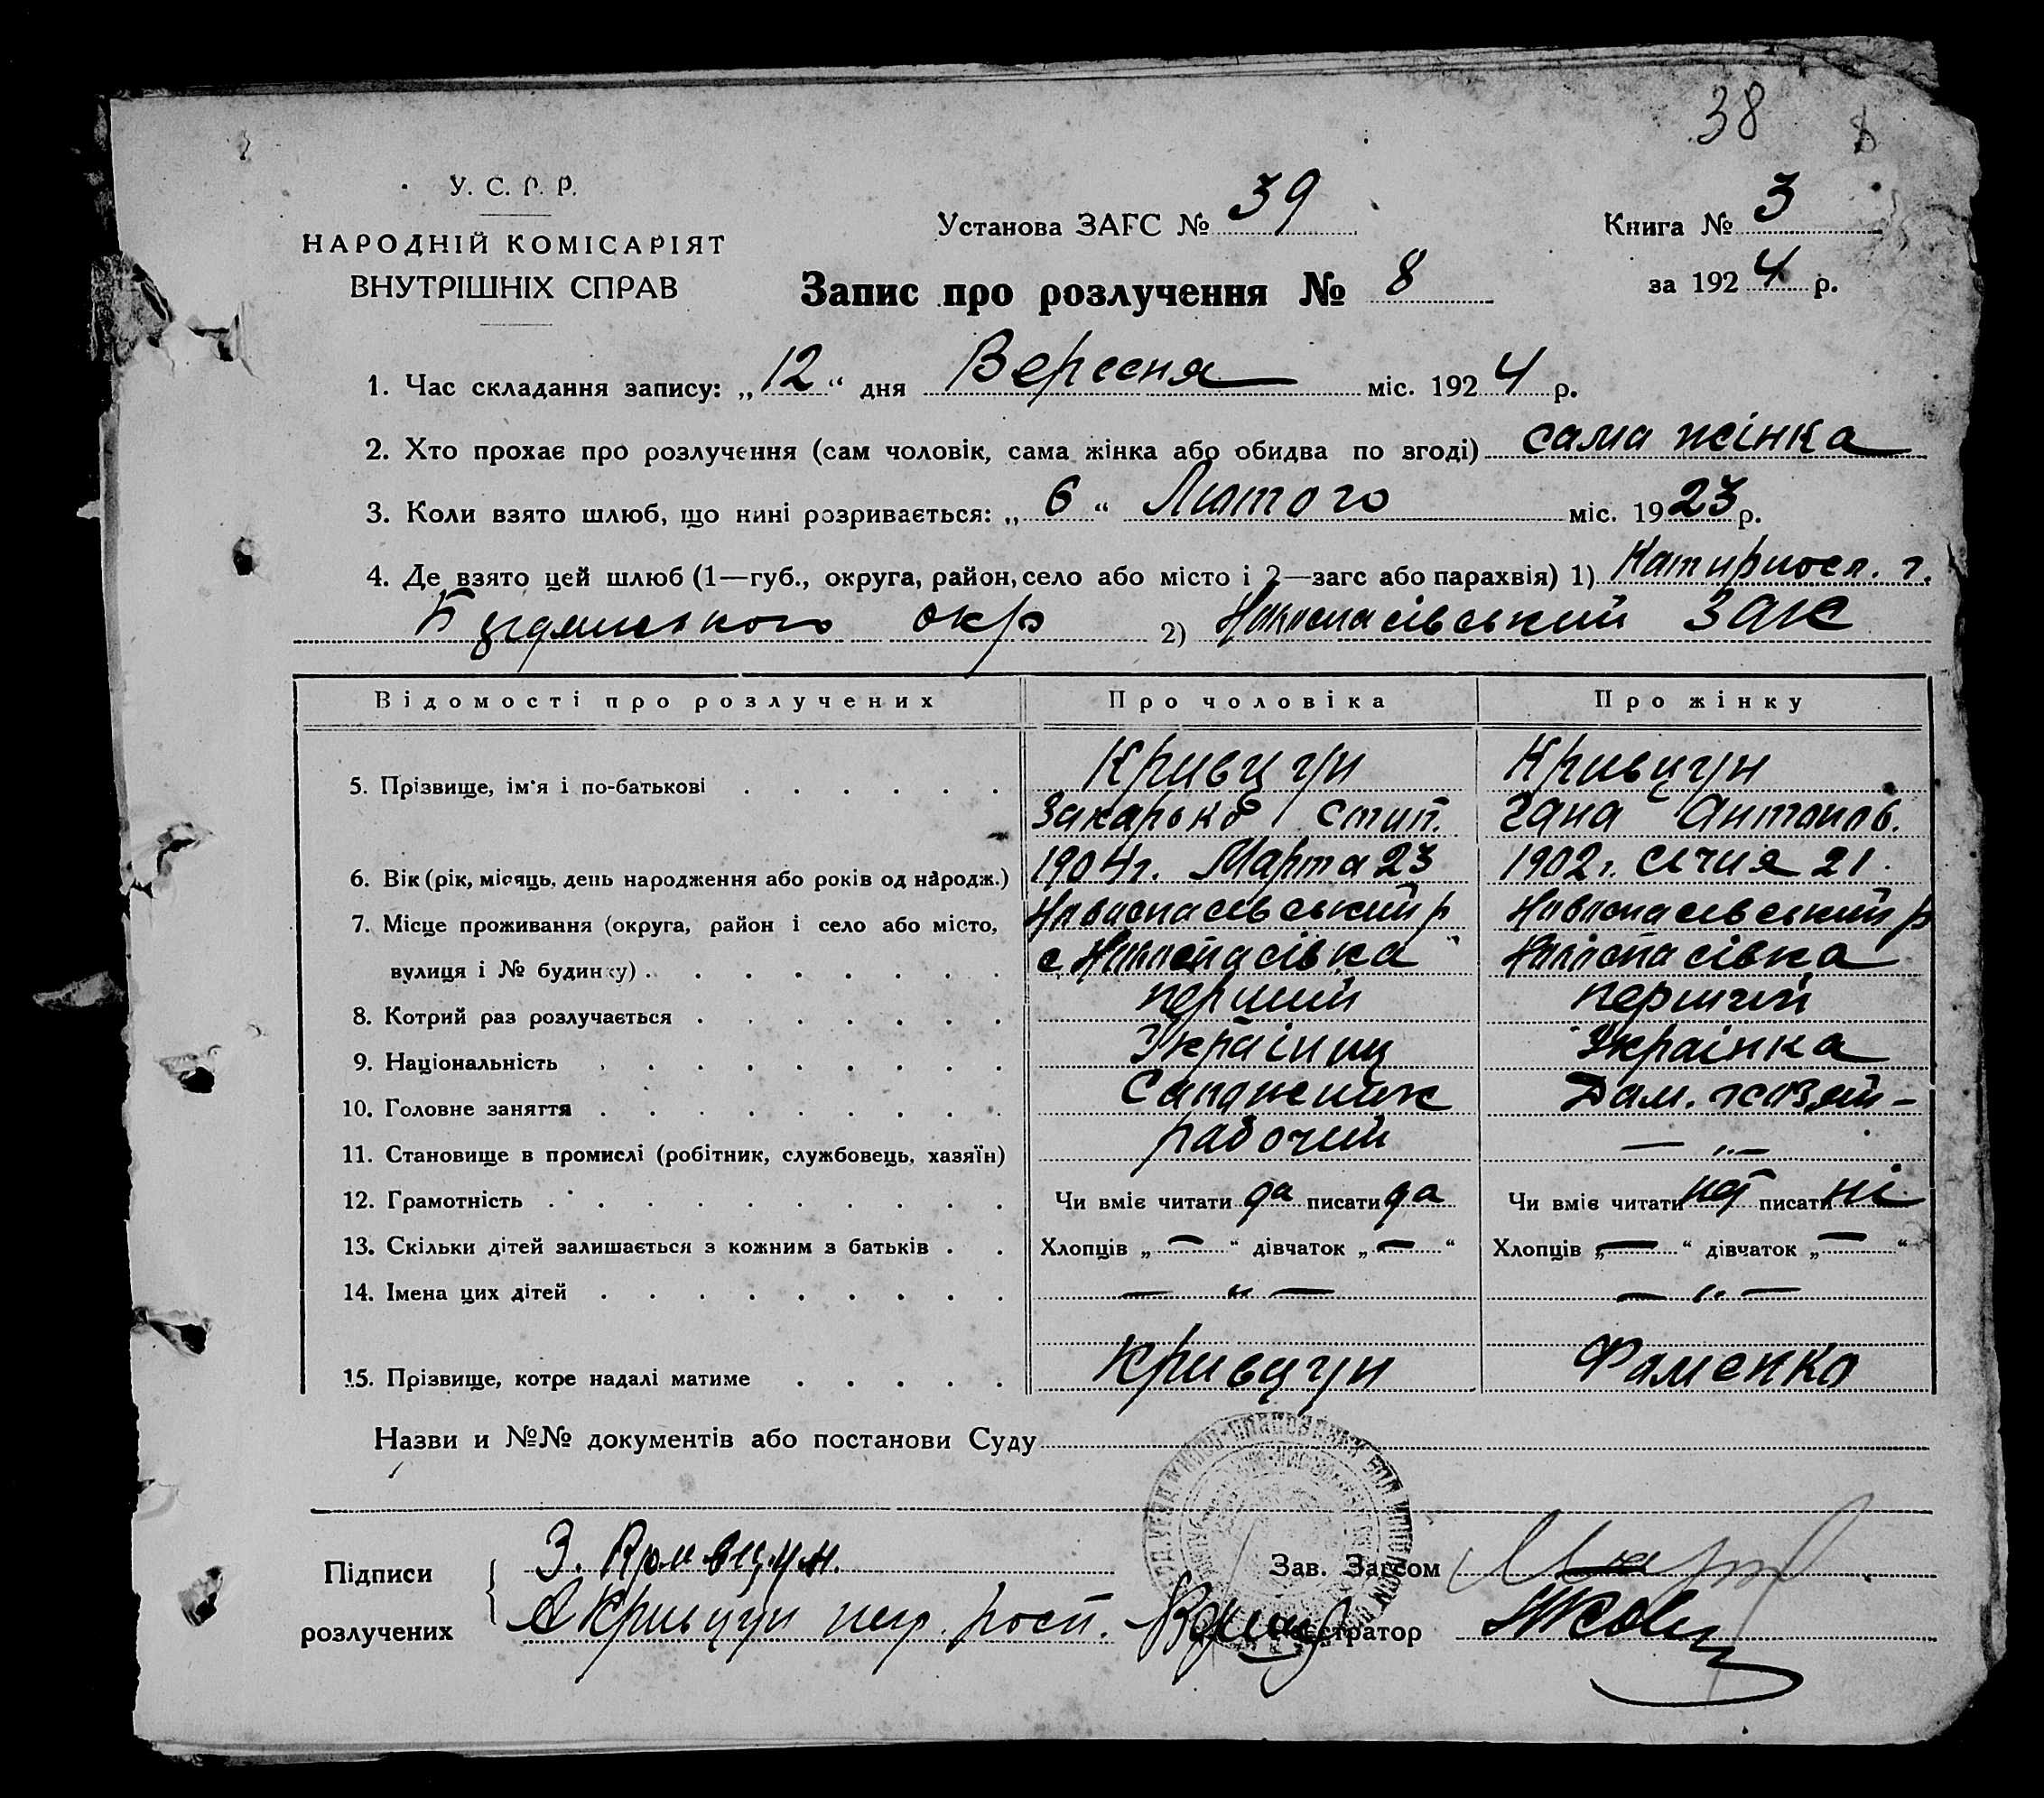 38
8
У. С. Р. Р.
НАРОДНІЙ КОМІСАРІЯТ
ВНУТРІШНІХ СПРАВ
Установа ЗАГС № 39
Книга № 3
за 1924 р.
Запис про розлучення № 8
1. Час складання запису: „12“ дня Вересня міс. 1924 р.
2. Хто прохає про розлучення (сам чоловік, сама жінка або обидва по згоді) сама жінка
3. Коли взято шлюб, що нині розривається: „6“ Лютого міс. 1923 р.
4. Де взято цей шлюб (1—губ., округа, район, село або місто і 2—загс або парахвія) 1) Катиросл. г.
окр 2) Новоспасівський ЗАГС
Відомості про розлучених Про чоловіка Про жінку
5. Прізвище, ім'я і по-батькові Кривцун Кривцун
Захарько Стип. Гана Антонов.
6. Вік (рік, місяць, день народження або років од народж.) 1904г. Марта 23 1902г. Січня 21.
7. Місце проживання (округа, район і село або місто, Новоспасівський р Новоспасівський р
вулиця і № будинку) с. Новоспасівка Новоспасівка
8. Котрий раз розлучається перший перший
9. Національність Українц Українка
10. Головне заняття Сапожник Дом. хозяй-
11. Становище в промислі (робітник, службовець, хазяїн) рабочий — „ —
12. Грамотність Чи вміє читати да писати да Чи вміє читати ні писати ні
13. Скільки дітей залишається з кожним з батьків Хлопців „—“ дівчаток „—“ Хлопців „—“ дівчаток „—“
14. Імена цих дітей — „ — — „ —
15. Прізвище, котре надалі матиме Кривцун Фоменко
Назви и №№ документів або постанови Суду
Підписи З. Кривцун. Зав. Загсом
розлучених А Кривцун негр. росп. Реєстратор